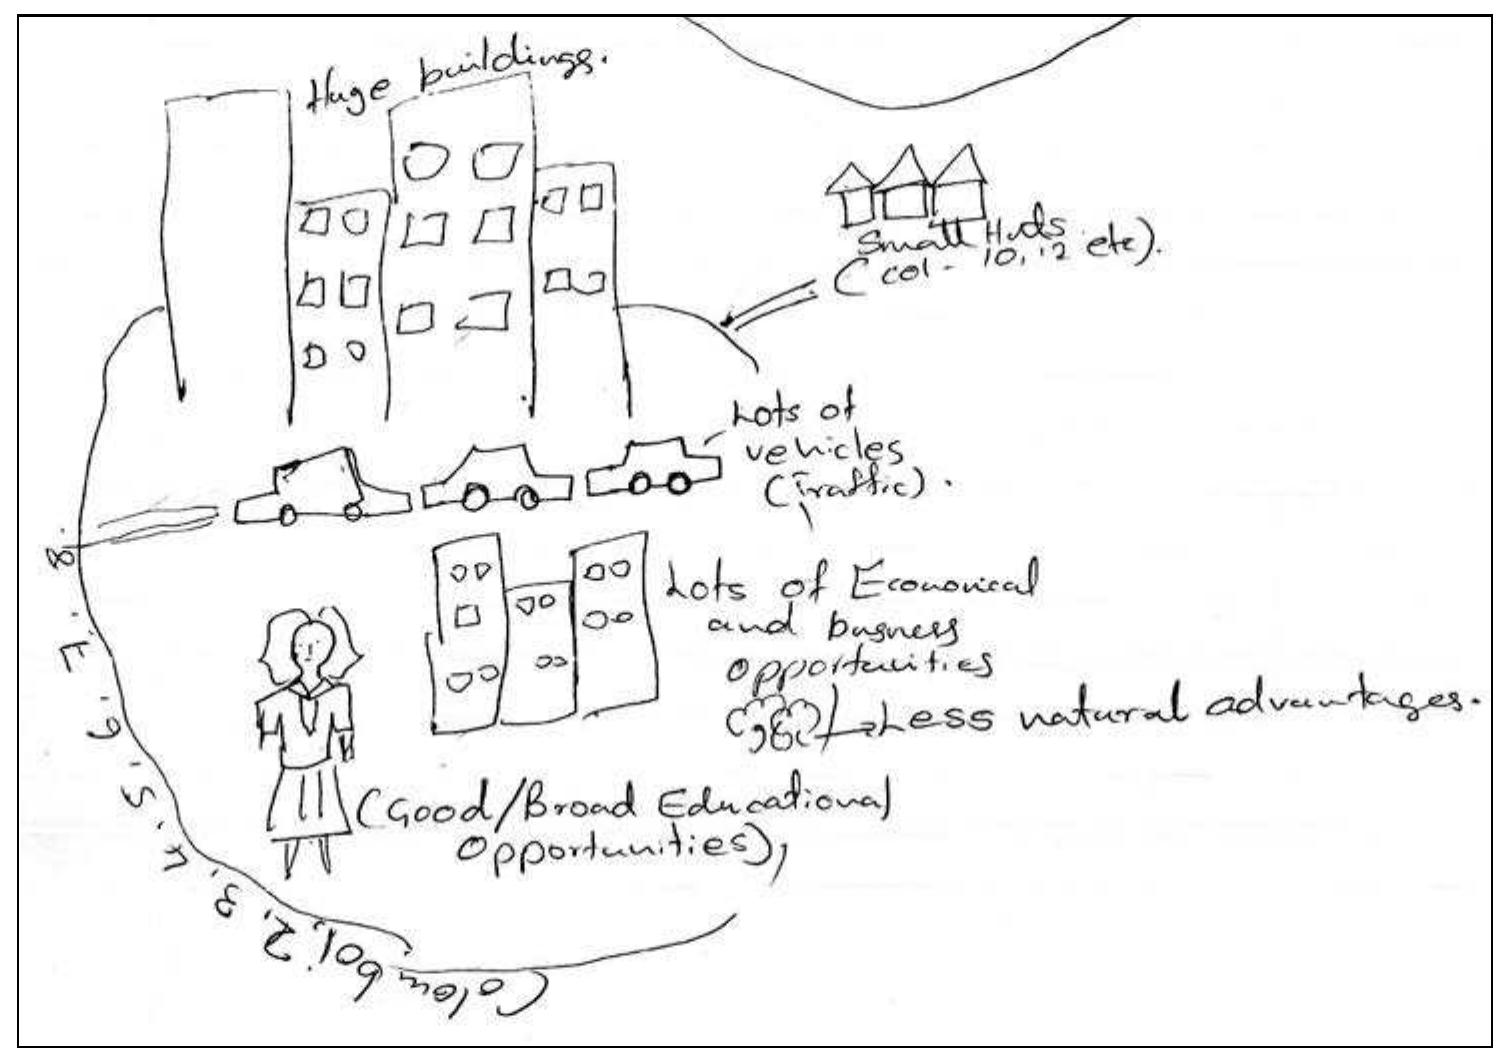 Huge buildings.
Small Huds
(col - 10, 12 etc).
Lots of
vehicles
(Traffic).
Lots of Economical
and busness
opportunities
Less natural advantages.
(Good/Broad Educational
Opportunities),
Colombo 1, 2, 3, 4, 5, 6, 7, 8.